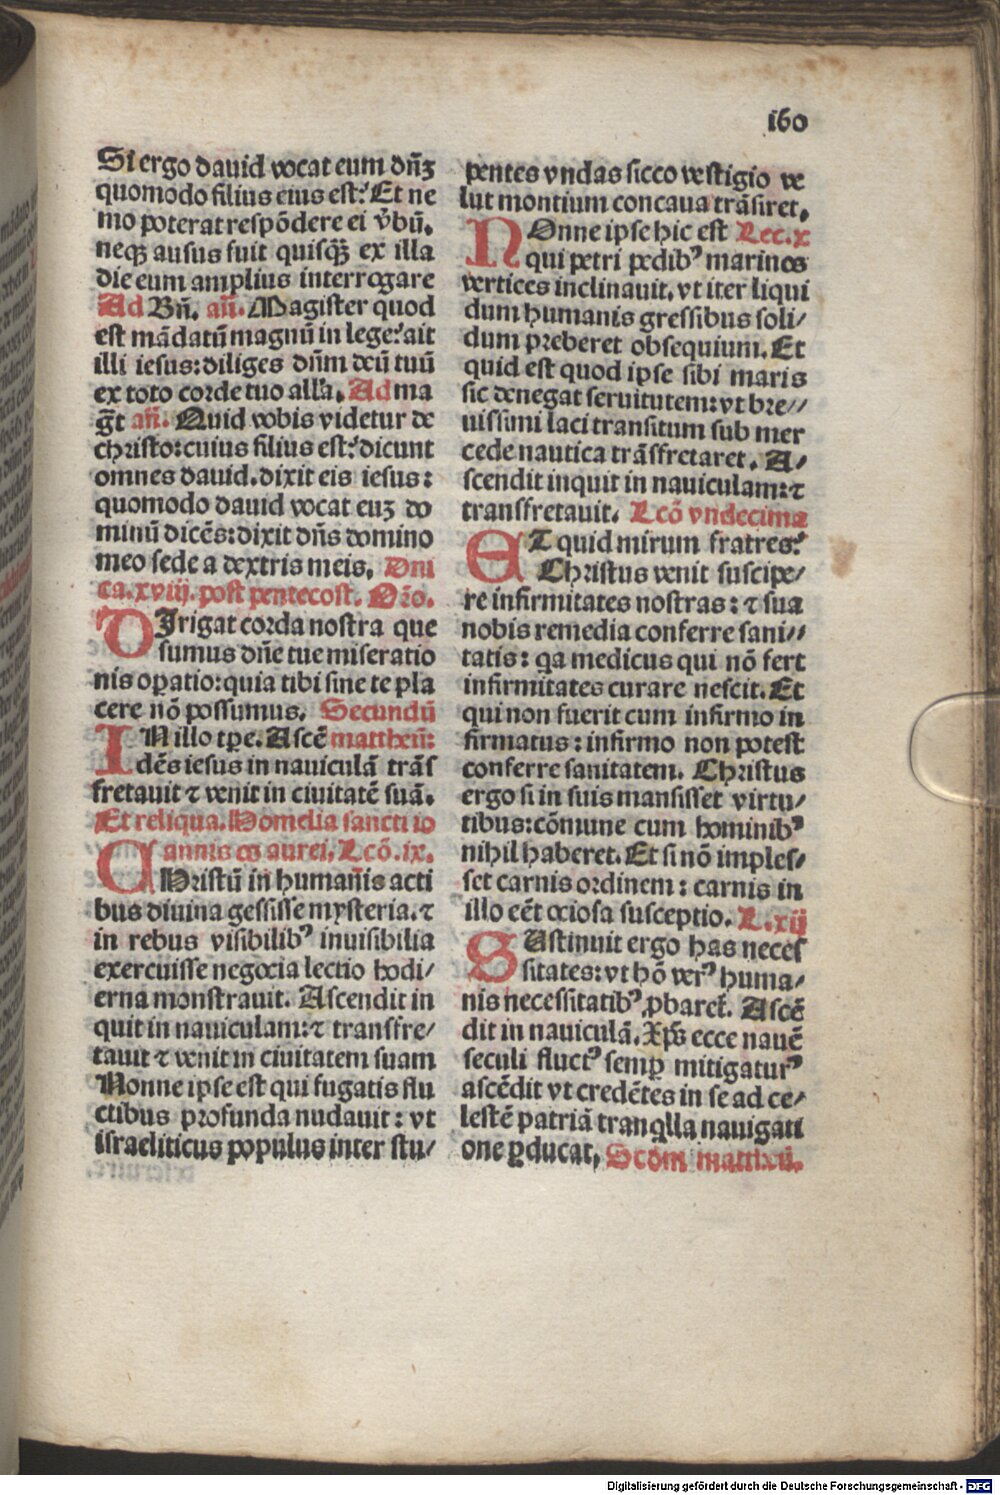 160
Si ergo dauid vocat eum dñꝫ
quomodo filius eius est: Et ne
mo poterat respõdere ei v̾bũ.
neqꝫ ausus fuit quisq̃ꝫ ex illa
die eum amplius interrogare
Ad Bñ. añ. Magister quod
est mãdatũ magnũ in lege: ait
illi iesus: diliges dñm deũ tuũ
ex toto corde tuo alla. Ad ma
g̃t añ. Quid vobis videtur de
christo: cuius filius est: dicunt
omnes dauid. dixit eis iesus:
quomodo dauid vocat euꝫ do
minũ dicẽs: dixit dñs domino
meo sede a dextris meis. Dni
ca. xviij. post pentecost. Oro.
DIrigat corda nostra que
sumus dñe tue miseratio
nis oꝑatio: quia tibi sine te pla
cere nõ possumus. Secundũ
IN illo tꝑe. Ascẽ mattheũ:
dẽs iesus in nauiculã trãs
fretauit ⁊ venit in ciuitatẽ suã.
Et reliqua. Homelia sancti io
annis os aurei. Lcõ. ix.
CHristũ in humanis acti
bus diuina gessisse mysteria. ⁊
in rebus visibilibꝰ inuisibilia
exercuisse negocia lectio hodi/
erna monstrauit. Ascendit in
quit in nauiculam: ⁊ transfre/
tauit ⁊ venit in ciuitatem suam
Nonne ipse est qui fugatis flu
ctibus profunda nudauit: vt
israeliticus populus inter stu/
pentes vndas sicco vestigio ve
lut montium concaua trãsiret.
NOnne ipse hic est Lec. x
qui petri pedibꝰ marinos
vertices inclinauit. vt iter liqui
dum humanis gressibus soli/
dum preberet obsequium. Et
quid est quod ipse sibi maris
sic denegat seruitutem: vt bre//
uissimi laci transitum sub mer
cede nautica trãsfretaret. A/
scendit inquit in nauiculam: ⁊
transfretauit. Lcõ vndecima
ET quid mirum fratres:
Christus venit suscipe/
re infirmitates nostras: ⁊ sua
nobis remedia conferre sani//
tatis: qa medicus qui nõ fert
infirmitates curare nescit. Et
qui non fuerit cum infirmo in
firmatus: infirmo non potest
conferre sanitatem. Christus
ergo si in suis mansisset virtu/
tibus: cõmune cum hominibꝰ
nihil haberet. Et si nõ implef/
set carnis ordinem: carnis in
illo eẽt ociosa susceptio. L. xij
SUstinuit ergo has necef
sitates: vt hõ verꝰ huma/
nis necessitatibꝰ ꝓbaret̃. Ascẽ
dit in nauiculã. Xp̃s ecce nauẽ
seculi fluctꝰ semꝑ mitigaturꝰ
ascẽdit vt credẽtes in se ad ce/
lestẽ patriã tranq̃lla nauigati
one ꝑducat. Scdm mattheũ.
Digitalisierung gefördert durch die Deutsche Forschungsgemeinschaft - DFG